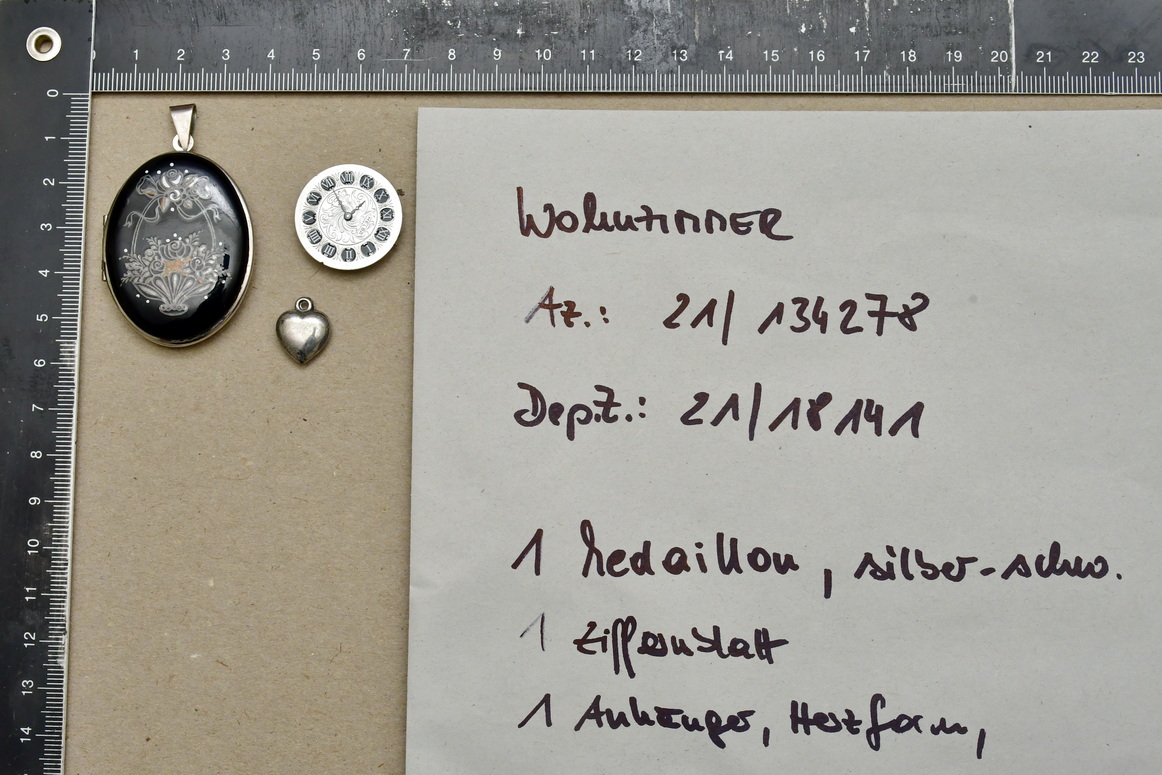 1 2 3 4 5 6 7 8 9 10 11 12 13 14 15 16 17 18 19 20 21 22 23
0
1
2
3
4
5
6
7
8
9
10
11
12
13
14
WOHNZIMMER
Az.: 21/134278
Dep.Z.: 21/18141
1 Medaillon, silber-schw.
1 Ziffernblatt
1 Anhänger, Herzform,